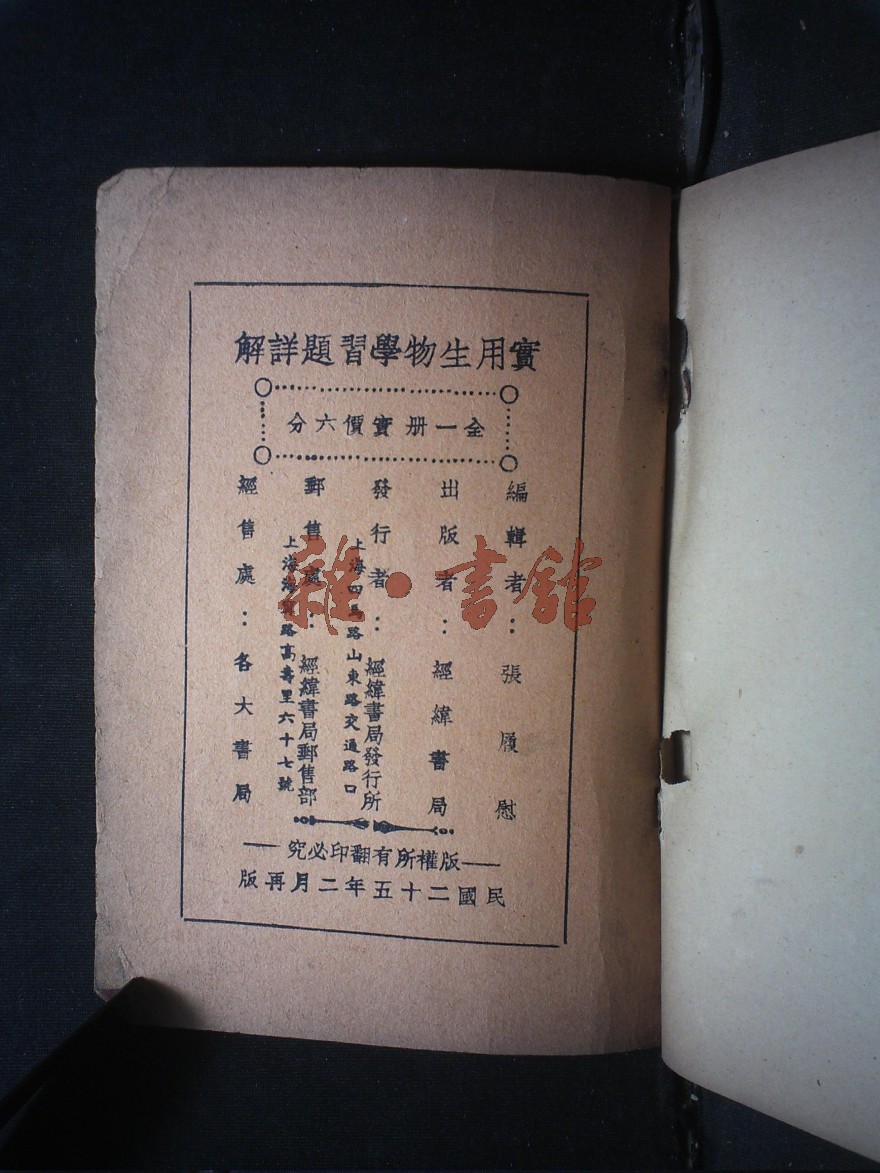 實用生物學習題詳解
全一册實價六分
編輯者:張履慰
出版者:經緯書局
發行者:經緯書局發行所
上海四馬路山東路交通路口
郵售處:經緯書局郵售部
上海海路高壽里六十七號
經售處:各大書局
版權所有翻印必究
民國二十五年二月再版
雜·書館